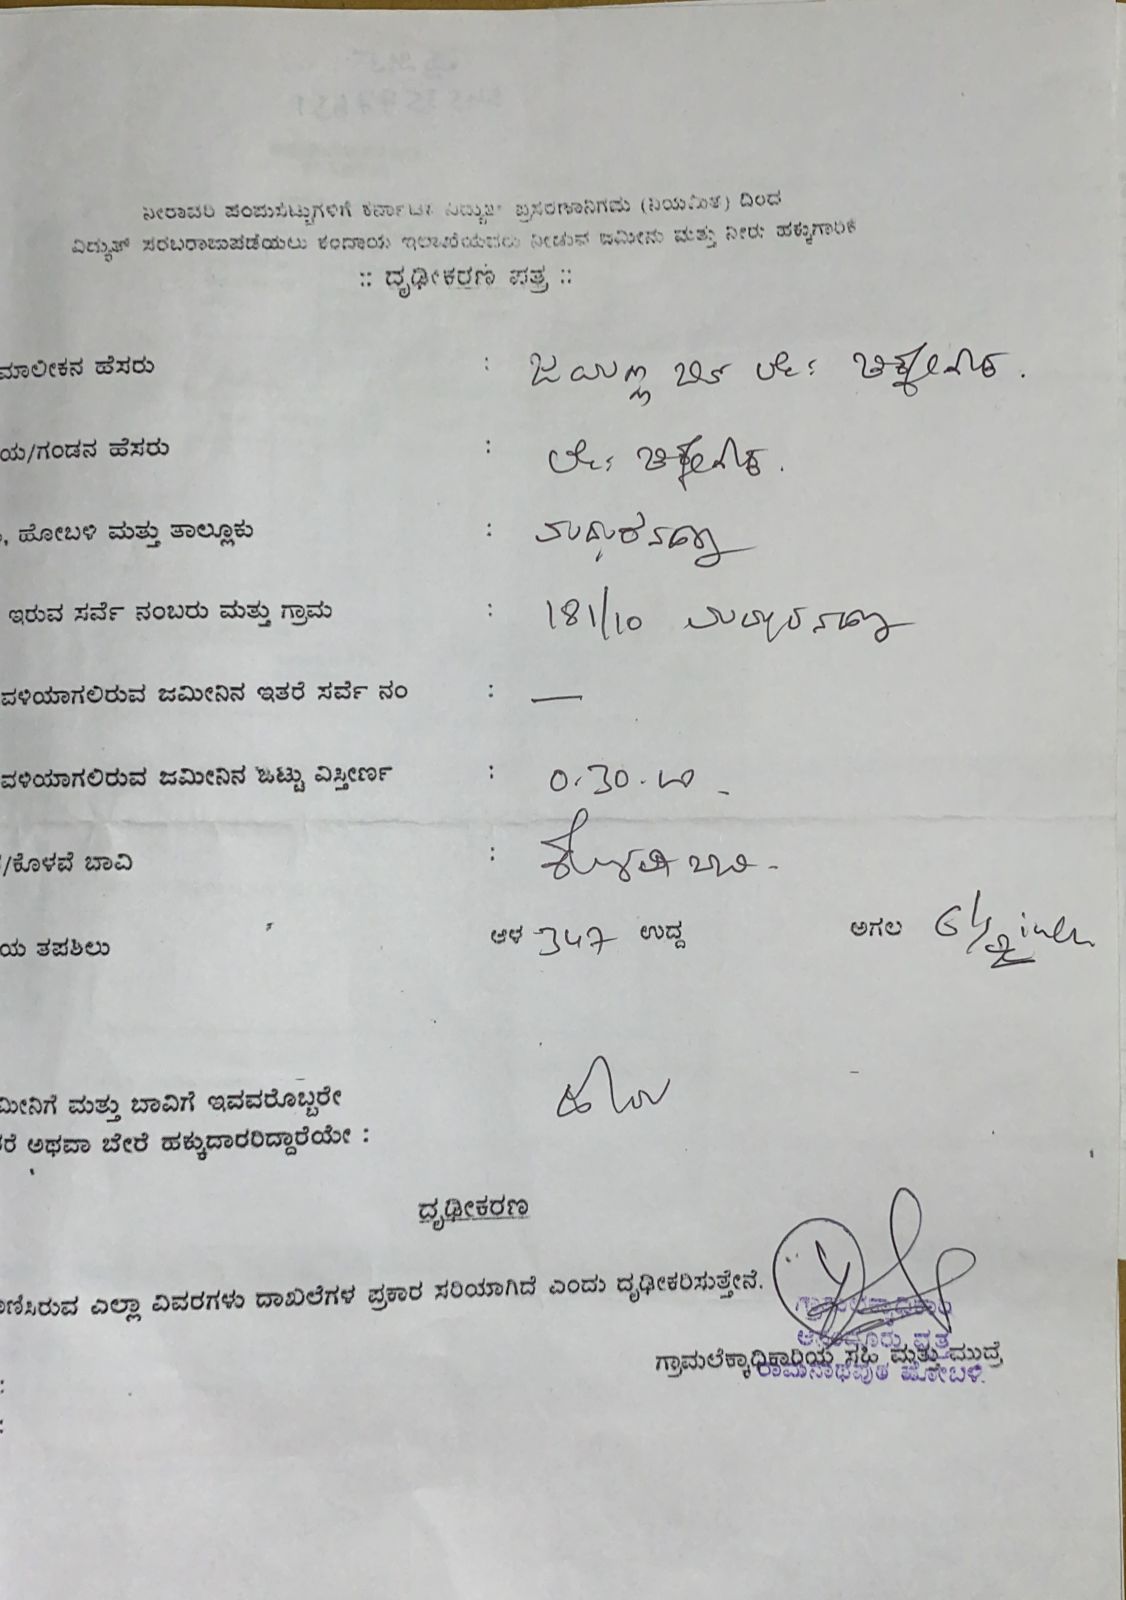 ನೀರಾವರಿ ಪಂಪುಸೆಟ್ಟುಗಳಿಗೆ ಕರ್ನಾಟಕ ವಿದ್ಯುತ್ ಪ್ರಸರಣಾನಿಗಮ (ನಿಯಮಿತ) ದಿಂದ
ವಿದ್ಯುತ್ ಸರಬರಾಜುಪಡೆಯಲು ಕಂದಾಯ ಇಲಾಖೆಯವರು ನೀಡುವ ಜಮೀನು ಮತ್ತು ನೀರು ಹಕ್ಕುಗಾರಿಕೆ
:: ದೃಢೀಕರಣ ಪತ್ರ ::
ಮಾಲೀಕನ ಹೆಸರು : ಜಯಣ್ಣ ಬಿನ್ ಲೇ:
ಯ/ಗಂಡನ ಹೆಸರು : ಲೇ:
, ಹೋಬಳಿ ಮತ್ತು ತಾಲ್ಲೂಕು :
ಇರುವ ಸರ್ವೆ ನಂಬರು ಮತ್ತು ಗ್ರಾಮ : 181/10
ವಳಿಯಾಗಲಿರುವ ಜಮೀನಿನ ಇತರೆ ಸರ್ವೆ ನಂ : —
ವಳಿಯಾಗಲಿರುವ ಜಮೀನಿನ ಒಟ್ಟು ವಿಸ್ತೀರ್ಣ : 0.30.
/ಕೊಳವೆ ಬಾವಿ : ಕೊಳವೆ ಬಾವಿ -
ಯ ತಪಶಿಲು ಆಳ 347 ಉದ್ದ ಅಗಲ 6½ inch
ಮೀನಿಗೆ ಮತ್ತು ಬಾವಿಗೆ ಇವವರೊಬ್ಬರೇ
ರೆ ಅಥವಾ ಬೇರೆ ಹಕ್ಕುದಾರರಿದ್ದಾರೆಯೇ : ಹೌದು
ದೃಢೀಕರಣ
ಣಿಸಿರುವ ಎಲ್ಲಾ ವಿವರಗಳು ದಾಖಲೆಗಳ ಪ್ರಕಾರ ಸರಿಯಾಗಿದೆ ಎಂದು ದೃಢೀಕರಿಸುತ್ತೇನೆ.
ಗ್ರಾಮಲೆಕ್ಕಾಧಿಕಾರಿ
ವೃತ್ತ
ಗ್ರಾಮಲೆಕ್ಕಾಧಿಕಾರಿಯ ಸಹಿ ಮತ್ತು ಮುದ್ರೆ
ರಾಮನಾಥಪುರ ಹೋಬಳಿ.
:
: